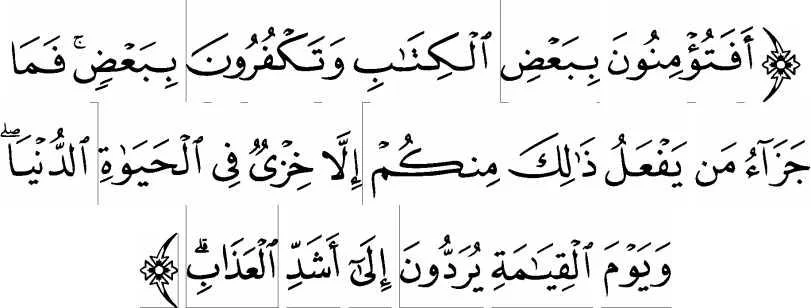 ﴿أَفَتُؤْمِنُونَ بِبَعْضِ ٱلْكِتَٰبِ وَتَكْفُرُونَ بِبَعْضٍۚ فَمَا
جَزَآءُ مَن يَفْعَلُ ذَٰلِكَ مِنكُمْ إِلَّا خِزْىٌ فِى ٱلْحَيَوٰةِ ٱلدُّنْيَاۖ
وَيَوْمَ ٱلْقِيَٰمَةِ يُرَدُّونَ إِلَىٰٓ أَشَدِّ ٱلْعَذَابِۗ﴾